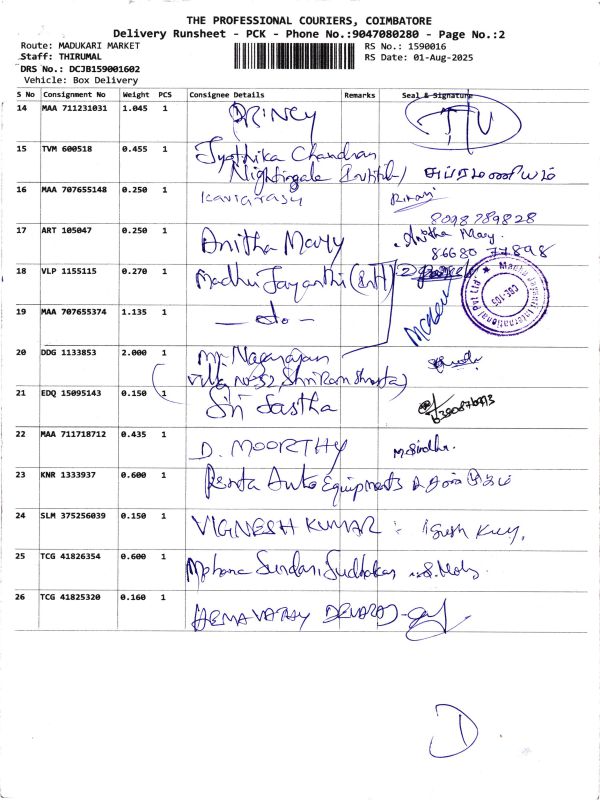 THE PROFESSIONAL COURIERS, COIMBATORE
Delivery Runsheet - PCK - Phone No.:9047080280 - Page No.:2
Route: MADUKARI MARKET RS No.: 1590016
Staff: THIRUMAL RS Date: 01-Aug-2025
DRS No.: DCJB159001602
Vehicle: Box Delivery
S No Consignment No Weight PCS Consignee Details Remarks Seal & Signature
14 MAA 711231031 1.045 1 PRINCY
15 TVM 600518 0.455 1 Jyothika Chandran
Nightingale
16 MAA 707655148 0.250 1 Kavigrasu
8098789828
17 ART 105047 0.250 1 Anitha Mary Anitha Mary
86680 77898
18 VLP 1155115 0.270 1 Madhu Jayanthi (Int)
19 MAA 707655374 1.135 1 — do —
20 DDG 1133853 2.000 1 Mr Nagarajan
Villa No 32, Shri Ram
21 EDQ 15095143 0.150 1 Sri Sastha
22 MAA 711718712 0.435 1 D. MOORTHY
23 KNR 1333937 0.600 1 Renta Auto Equipments
24 SLM 375256039 0.150 1 VIGNESH KUMAR :
25 TCG 41826354 0.600 1 Sundari Sudhakar
26 TCG 41825320 0.160 1 HEMAVATHY DEVARAJ